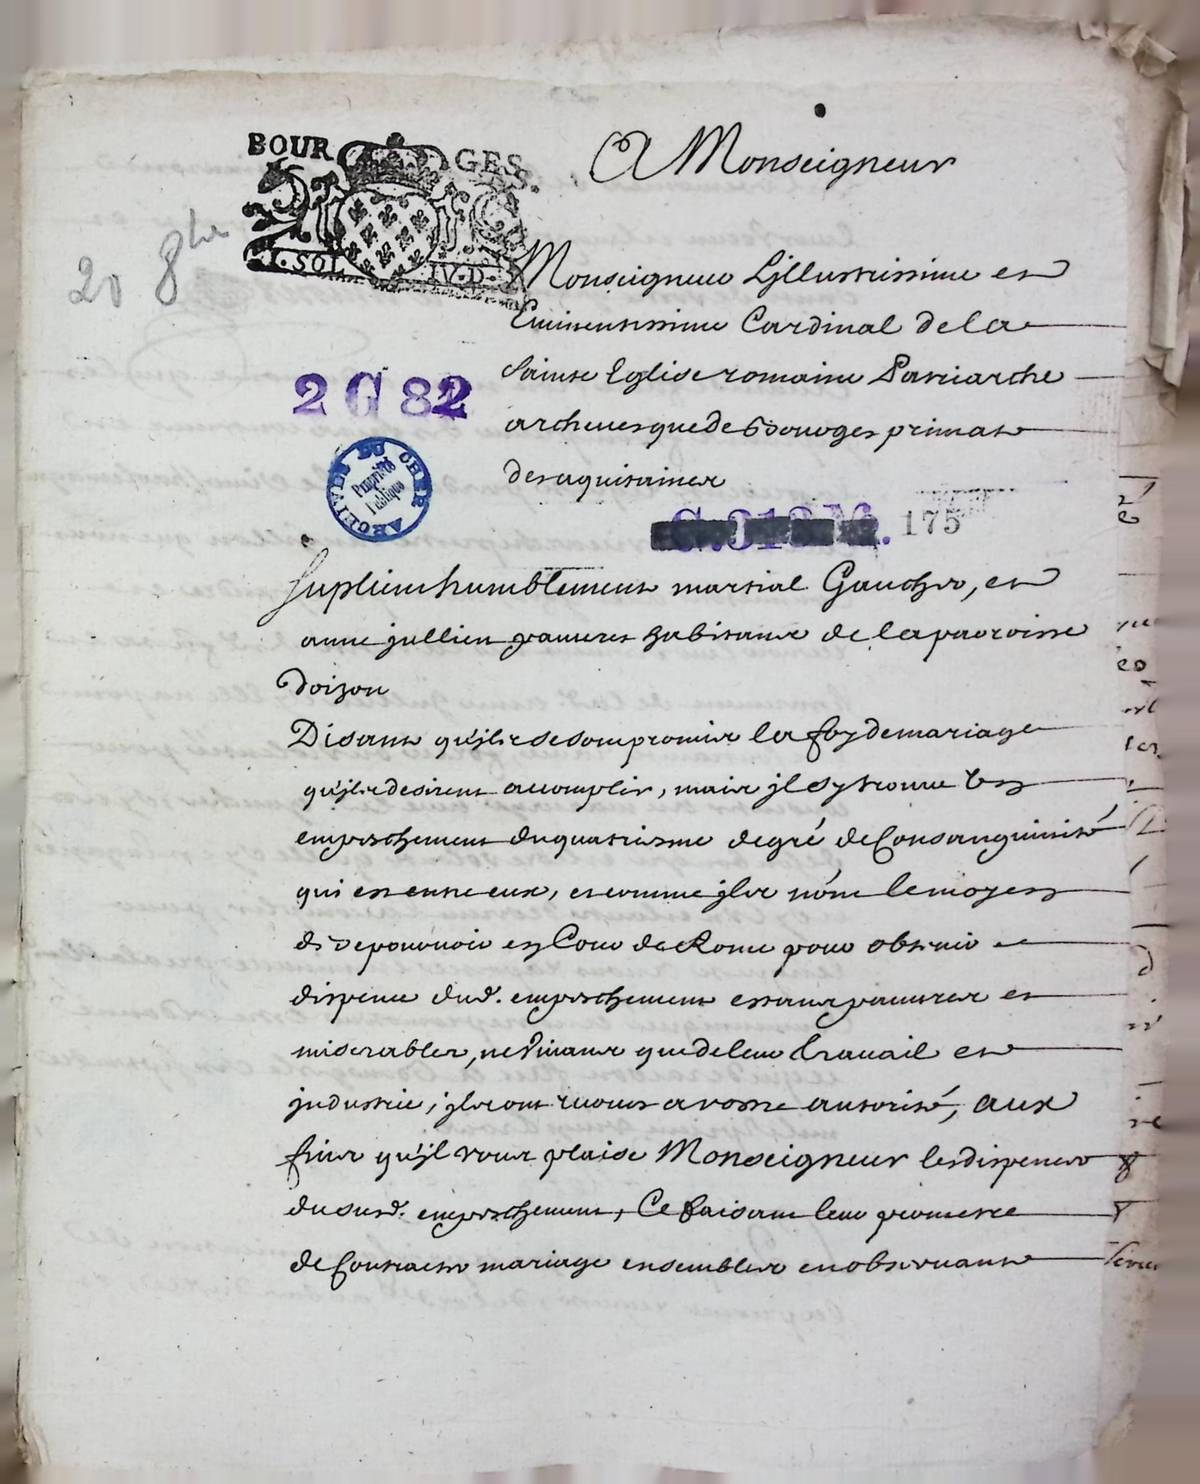 BOURGES.
I. SOL IV. D.
20 8bre
A Monseigneur
Monseigneur L'jllustrissime et
Eminentissime Cardinal de la
Sainte Eglise romaine Patriarche
archeuesque de Bourges primat
des aquitaines
2 G 82
ARCHIVES DU CHER
Propriété
Publique
175
Suplient humblement martial Gaucher, et
anne jullien pauures habitans de la parroisse
doizon
Disant qu'jls se sont promis la foy de mariage
qu'jls desirent accomplir, mais jl sy trouue Un
empeschement du quatriesme degré de Consanguinité
qui est entre eux, et comme jls nont le moyen
de se pouruoir en Cour de Rome pour obtenir
dispense dud. empeschement estant pauures et
miserables, ne Viuant que de leur trauail et
jndustrie, jls ont recours a vostre autorité, aux
fins qu'jl vous plaise Monseigneur les dispenser
du susd. empeschement, Ce faisant leur promettre
de Contracter mariage ensembles en obseruant